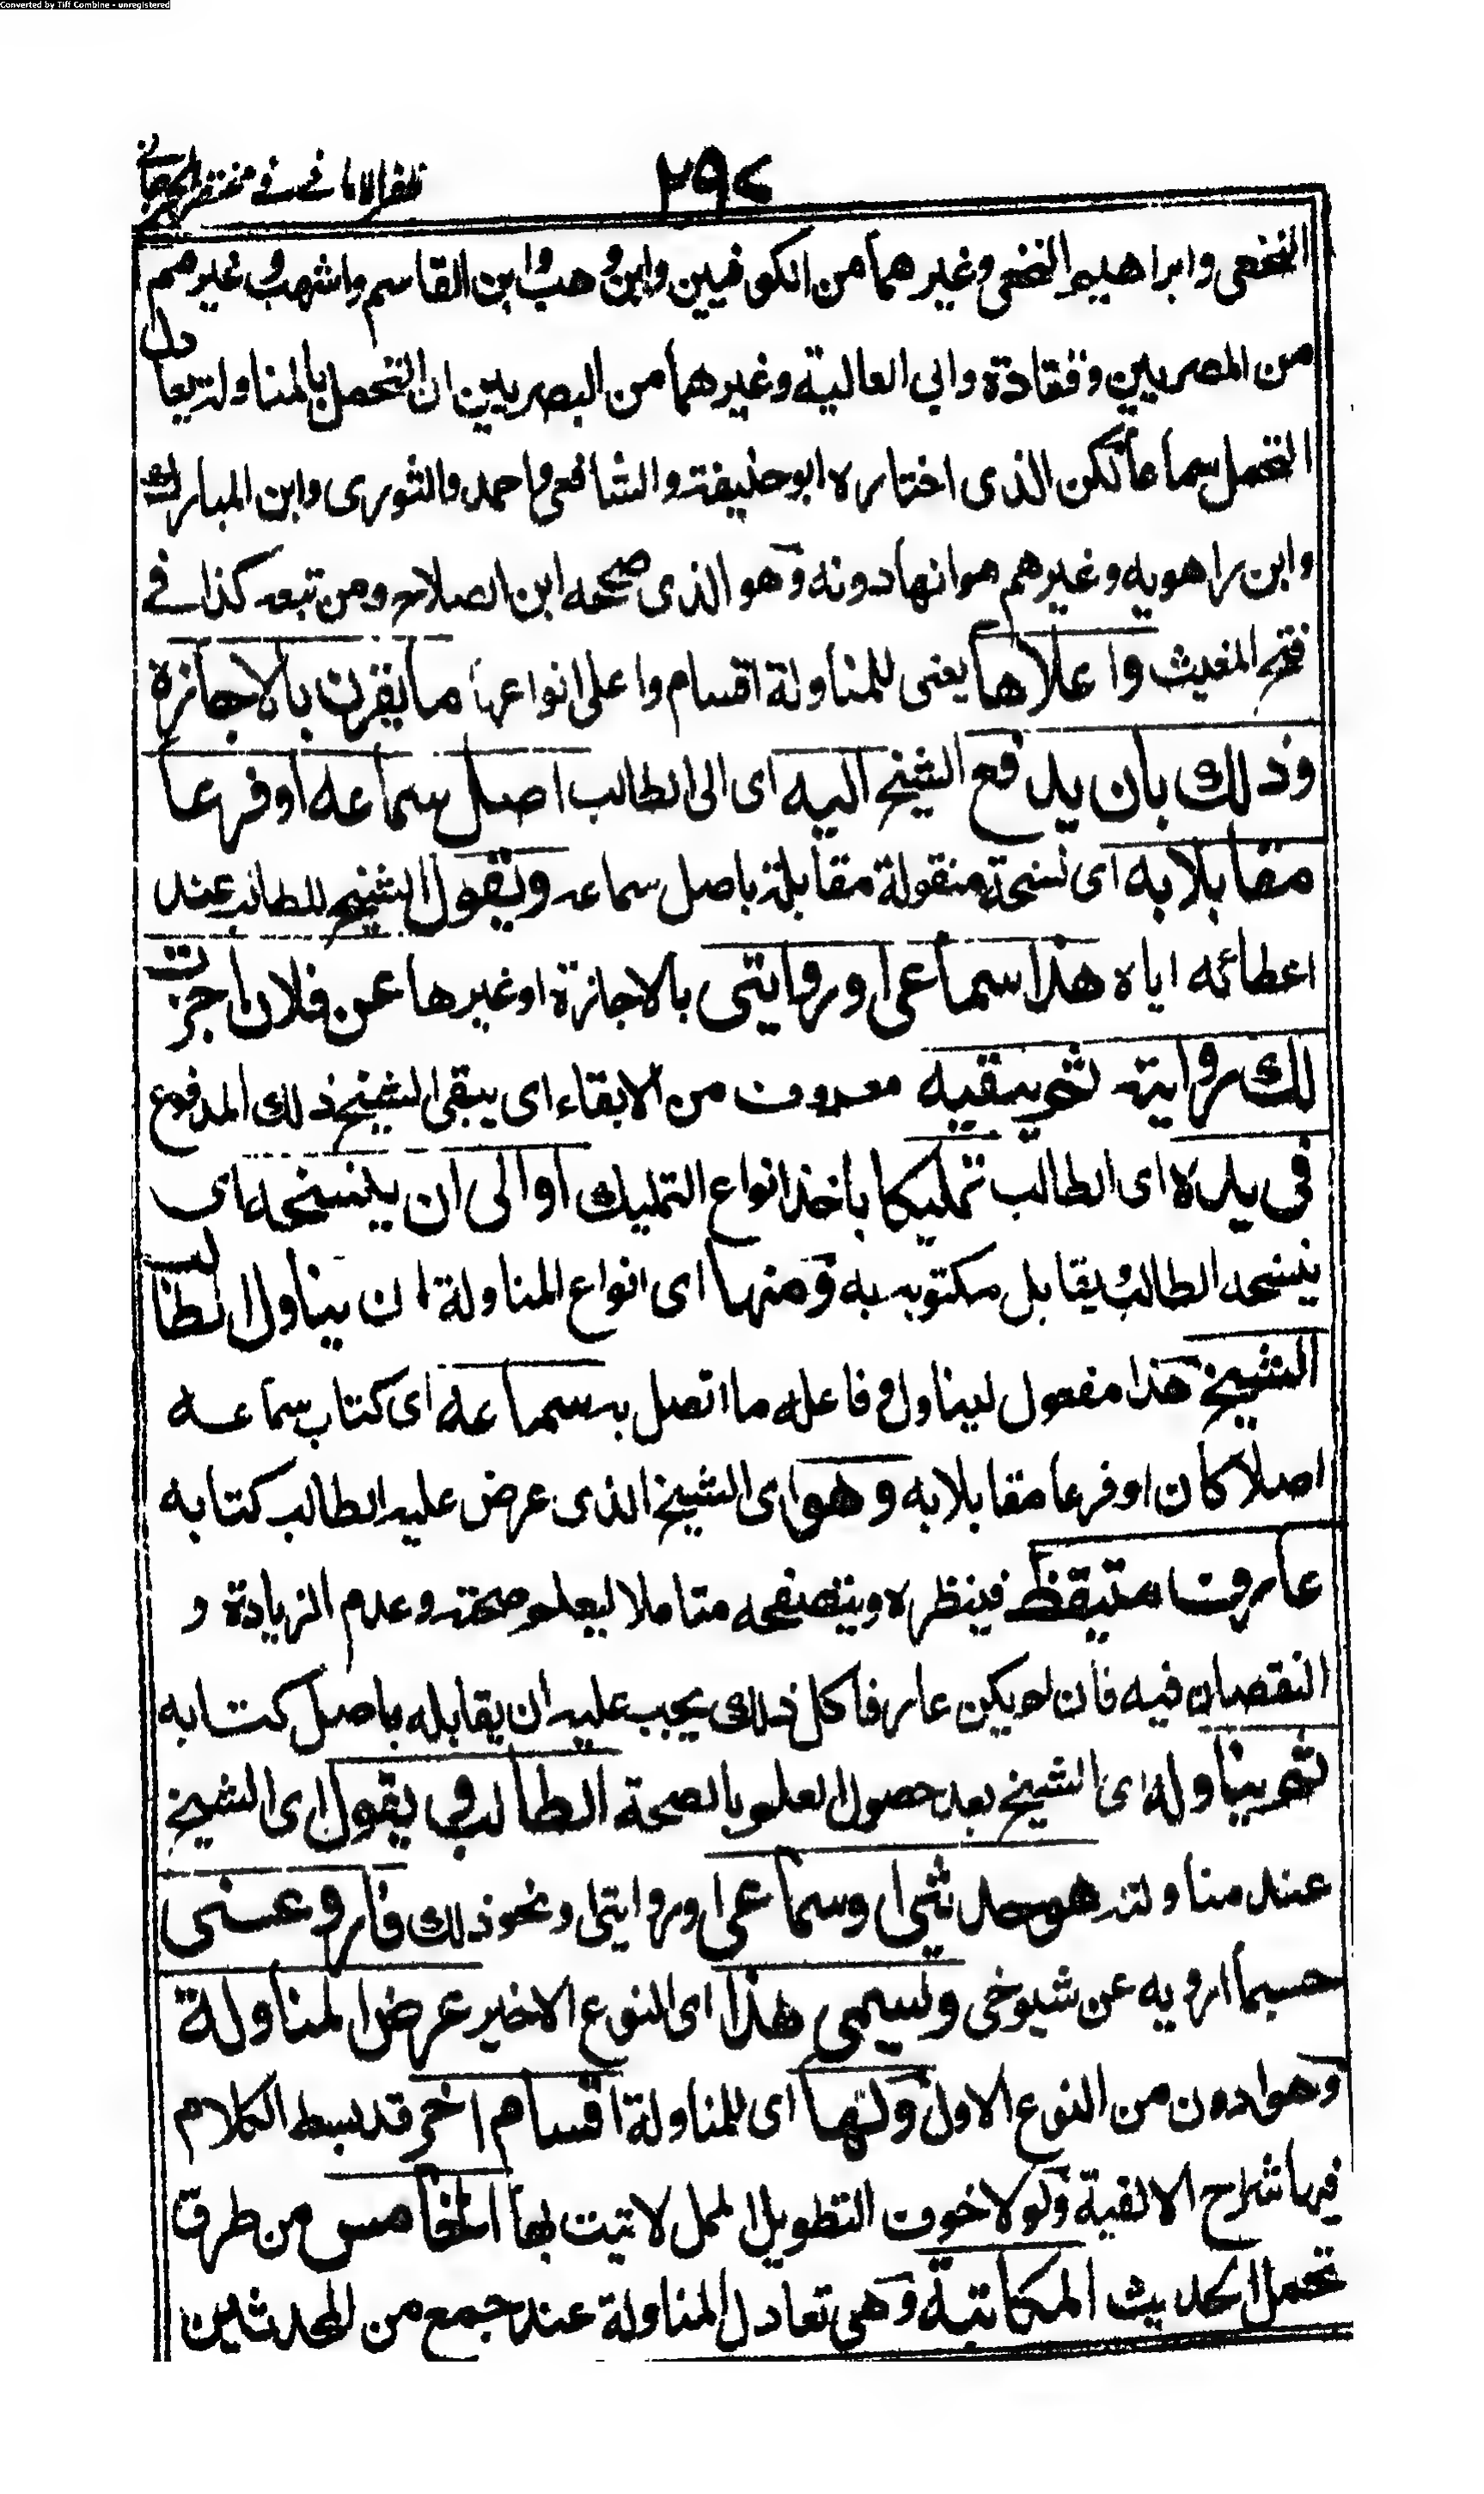 Converted by Tiff Combine - unregistered
ظفر الامانى فى مختصر الجرجانى
٢٩٧
النخعى وابراهيم النخعى وغيرهما من الكوفيين وابن وهب وابن القاسم واشهب وغيرهم
من المصريين وقتادة وابى العالية وغيرهما من البصريين ان التحمل بالمناولة يعادل
التحمل سماعا لكن الذى اختاره ابو حنيفة والشافعى واحمد والثورى وابن المبارك
وابن راهويه وغيرهم هو انها دونه وهو الذى صححه ابن الصلاح ومن تبعه كذا فى
فتح المغيث واعلاها يعنى للمناولة اقسام واعلى انواعها ما يقرن بالاجازة
وذلك بان يدفع الشيخ اليه اى الى الطالب اصل سماعه او فرعا
مقابلا به اى نسخة منقولة مقابلة باصل سماعه ويقول الشيخ للطالب عند
اعطائه اياه هذا سماعى او روايتى بالاجازة او غيرها عن فلان اجزت
لك روايته ثم يبقيه معروف من الابقاء اى يبقى الشيخ ذلك المدفوع
فى يده اى الطالب تمليكا باخذ انواع التمليك او الى ان ينسخه اى
ينسخه الطالب يقابل مكتوبه به ومنها اى انواع المناولة ان يناول الطالب
الشيخ هذا مفعول ليناول وفاعله ما اتصل به سماعه اى كتاب سماعه
اصلا كان او فرعا مقابلا به وهو اى الشيخ الذى عرض عليه الطالب كتابه
عارف متيقظ فينظره ويتصفحه متاملا ليعلم صحته وعدم الزيادة و
النقصان فيه فان لم يكن عارفا كل ذلك يجب عليه ان يقابله باصل كتابه
ثم يناوله اى الشيخ بعد حصول العلم بالصحة الطالب ويقول اى الشيخ
عند مناولته هو حديثى او سماعى او روايتى او نحو ذلك فارو عنى
حسبما ارويه عن شيوخى ويسمى هذا اى النوع الاخير عرض المناولة
وهو ادون من النوع الاول ولها اى للمناولة اقسام اخر قد بسط الكلام
فيها شراح الالفية ولولا خوف التطويل الممل لاتيت بها الخامس من طرق
تحمل الحديث المكاتبة وهى تعادل المناولة عند جمع من المحدثين